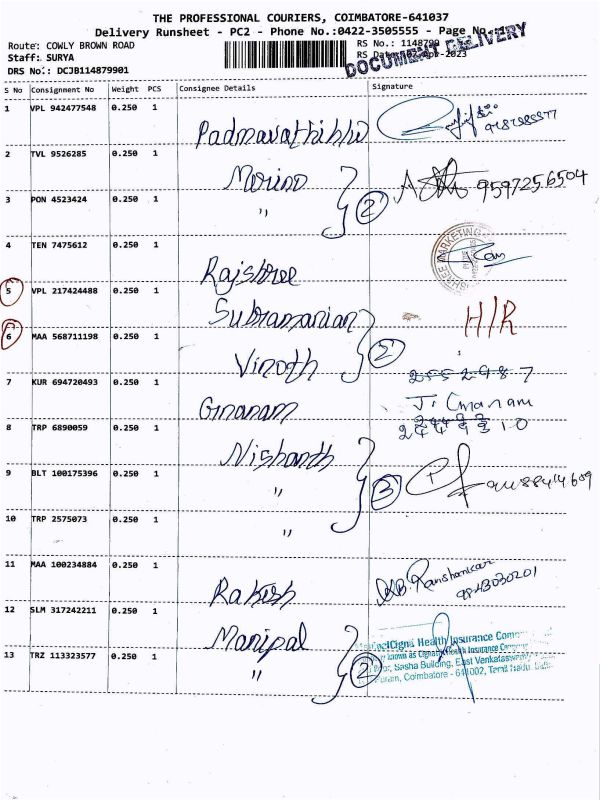 THE PROFESSIONAL COURIERS, COIMBATORE-641037
Delivery Runsheet - PC2 - Phone No.:0422-3505555 - Page No.:1
Route: COWLY BROWN ROAD
Staff: SURYA
DRS No.: DCJB114879901
RS No.: 1148799
RS Date: Apr-2023
DOCUMENT DELIVERY
S No Consignment No Weight PCS Consignee Details Signature
1 VPL 942477548 0.250 1 Padmavathi
2 TVL 9526285 0.250 1 Merino
9597256504
3 PON 4523424 0.250 1 "
2
4 TEN 7475612 0.250 1 Rajshree
MARKETING
5 VPL 217424488 0.250 1 Subramanian H/R
6 MAA 568711198 0.250 1 Vinoth
2
2552987
7 KUR 694720493 0.250 1 Gnanam
J. Gnanam
8 TRP 6890059 0.250 1 Nishanth
9 BLT 100175396 0.250 1 "
3
10 TRP 2575073 0.250 1 "
11 MAA 100234884 0.250 1 Rakesh
12 SLM 317242211 0.250 1 Manipal
13 TRZ 113323577 0.250 1 "
2
Cigna Health Insurance
known as Cigna Health Insurance
Sasha Building, East Venkataswamy
Puram, Coimbatore - 641002, Tamil Nadu